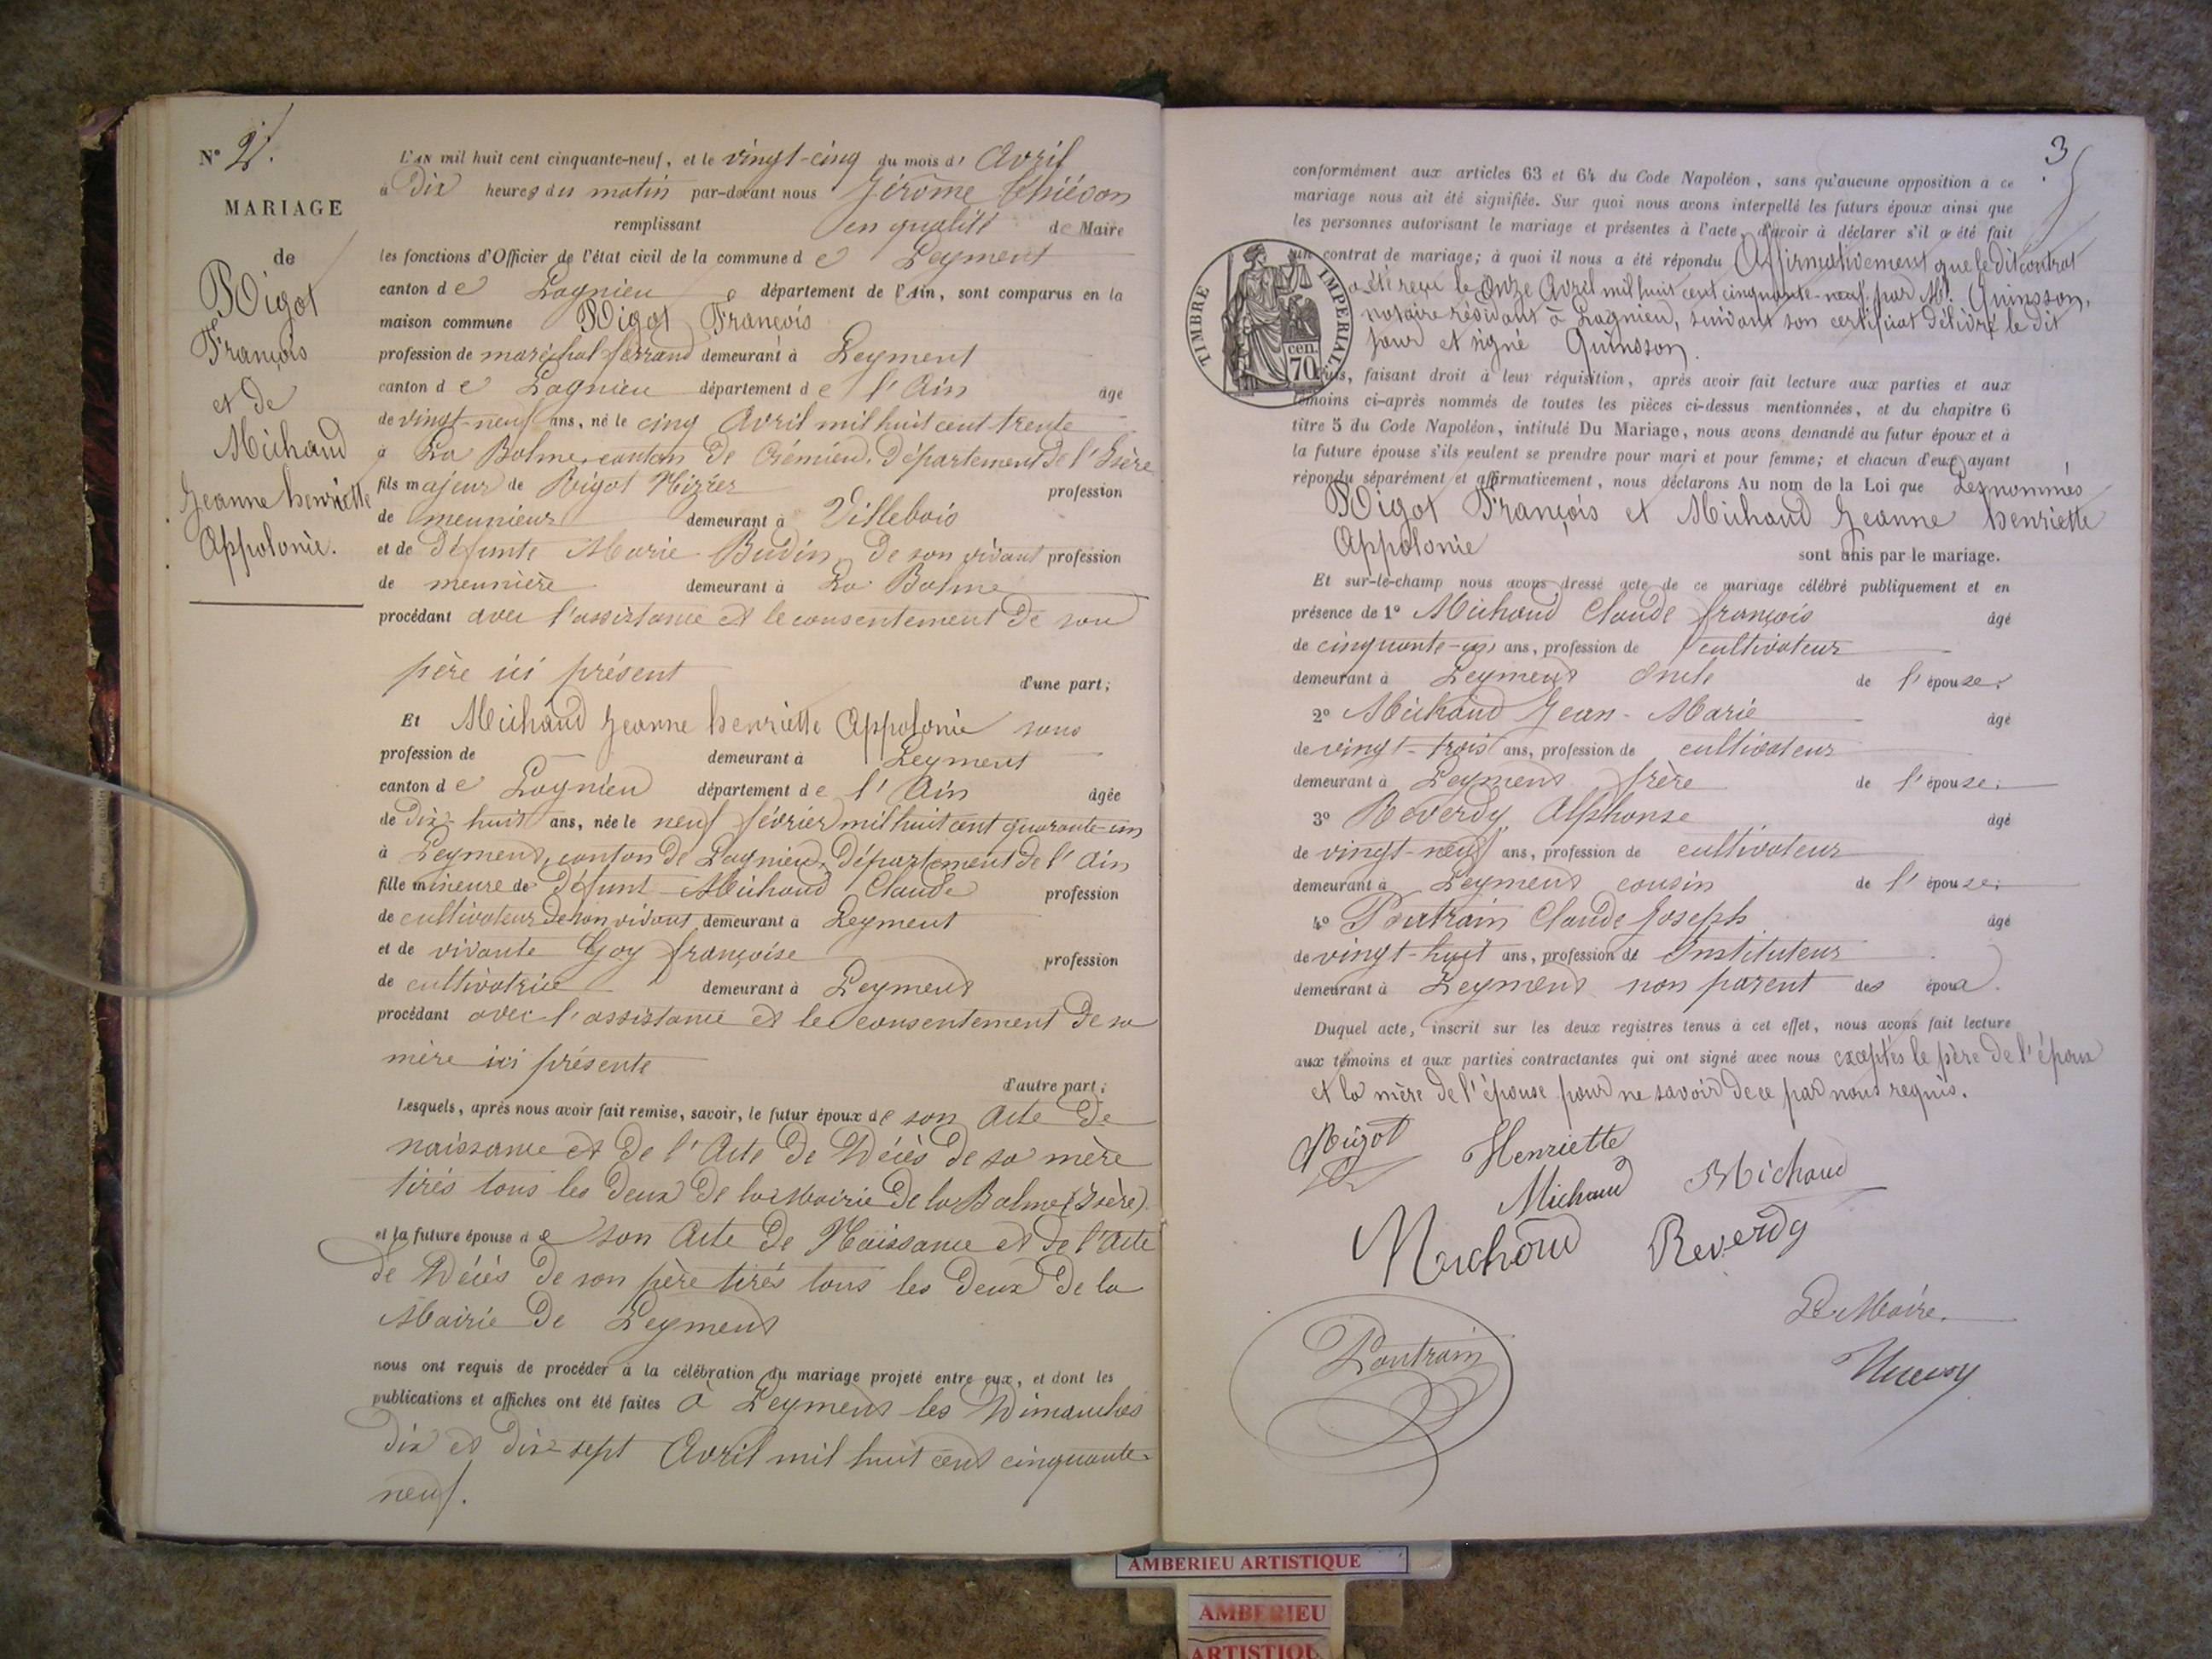 N° 2.
MARIAGE
de
Rigot
François
et de
Michaud
Jeanne henriette
Appolonie.
L'AN mil huit cent cinquante-neuf, et le vingt-cinq du mois d' Avril
à Dix heures du matin par-devant nous Jérôme
remplissant en qualité de Maire
les fonctions d'Officier de l'état civil de la commune de Leyment
canton de Lagnieu département de l'Ain, sont comparus en la
maison commune Rigot François
profession de maréchal ferrand demeurant à Leyment
canton de Lagnieu département de l'Ain âgé
de vingt-neuf ans, né le cinq Avril mil huit cent trente
à La Balme, canton de Crémieu, Département de l'Isère
fils majeur de Rigot Nizier profession
de meunieur demeurant à Villebois
et de défunte Marie Budin, de son vivant profession
de meunière demeurant à La Balme
procédant avec l'assistance et le consentement de son
père ici présent
d'une part;
Et Michaud Jeanne henriette Appolonie sans
profession de — demeurant à Leyment
canton de Lagnieu département de l'Ain âgée
de Dix-huit ans, née le neuf février mil huit cent quarante-un
à Leyment, canton de Lagnieu, Département de l'Ain
fille mineure de défunt Michaud Claude profession
de cultivateur de son vivant demeurant à Leyment
et de vivante Goy françoise profession
de cultivatrice demeurant à Leyment
procédant avec l'assistance et le consentement de sa
mère ici présente
d'autre part;
Lesquels, après nous avoir fait remise, savoir, le futur époux de son Acte de
naissance et de l'Acte de Décès de sa mère
tirés tous les deux de la Mairie de la Balme (Isère).
et la future épouse de son Acte de Naissance et de l'Acte
de Décès de son père tirés tous les deux de la
Mairie de Leyment
nous ont requis de procéder à la célébration du mariage projeté entre eux, et dont les
publications et affiches ont été faites à Leyment les Dimanches
dix et dix-sept Avril mil huit cent cinquante-
neuf.
3
conformément aux articles 63 et 64 du Code Napoléon, sans qu'aucune opposition à ce
mariage nous ait été signifiée. Sur quoi nous avons interpellé les futurs époux ainsi que
les personnes autorisant le mariage et présentes à l'acte, d'avoir à déclarer s'il a été fait
un contrat de mariage; à quoi il nous a été répondu Affirmativement que le dit contrat
a été reçu le onze Avril mil huit cent cinquante-neuf par Mr. Quinsson,
notaire résidant à Lagnieu, suivant son certificat délivré le dit
jour et signé Quinsson.
TIMBRE IMPERIAL
70 cen.
Puis, faisant droit à leur réquisition, après avoir fait lecture aux parties et aux
témoins ci-après nommés de toutes les pièces ci-dessus mentionnées, et du chapitre 6
titre 5 du Code Napoléon, intitulé Du Mariage, nous avons demandé au futur époux et à
la future épouse s'ils veulent se prendre pour mari et pour femme; et chacun d'eux ayant
répondu séparément et affirmativement, nous déclarons Au nom de la Loi que Les nommés
Rigot François et Michaud Jeanne henriette
Appolonie sont unis par le mariage.
Et sur-le-champ nous avons dressé acte de ce mariage célébré publiquement et en
présence de 1° Michaud Claude françois âgé
de cinquante-un ans, profession de cultivateur
demeurant à Leyment oncle de l'épouse;
2° Michaud Jean-Marie âgé
de vingt-trois ans, profession de cultivateur
demeurant à Leyment frère de l'épouse;
3° Reverdy Alphonse âgé
de vingt-neuf ans, profession de cultivateur
demeurant à Leyment cousin de l'épouse;
4° Poutrain Claude Joseph âgé
de vingt-huit ans, profession de Instituteur
demeurant à Leyment non parent des époux.
Duquel acte, inscrit sur les deux registres tenus à cet effet, nous avons fait lecture
aux témoins et aux parties contractantes qui ont signé avec nous exceptés le père de l'époux
et la mère de l'épouse pour ne savoir de ce par nous requis.
Rigot
Henriette
Michaud
Michaud
Michaud
Reverdy
Poutrain
Le Maire.
AMBERIEU ARTISTIQUE
AMBERIEU
ARTISTIQUE